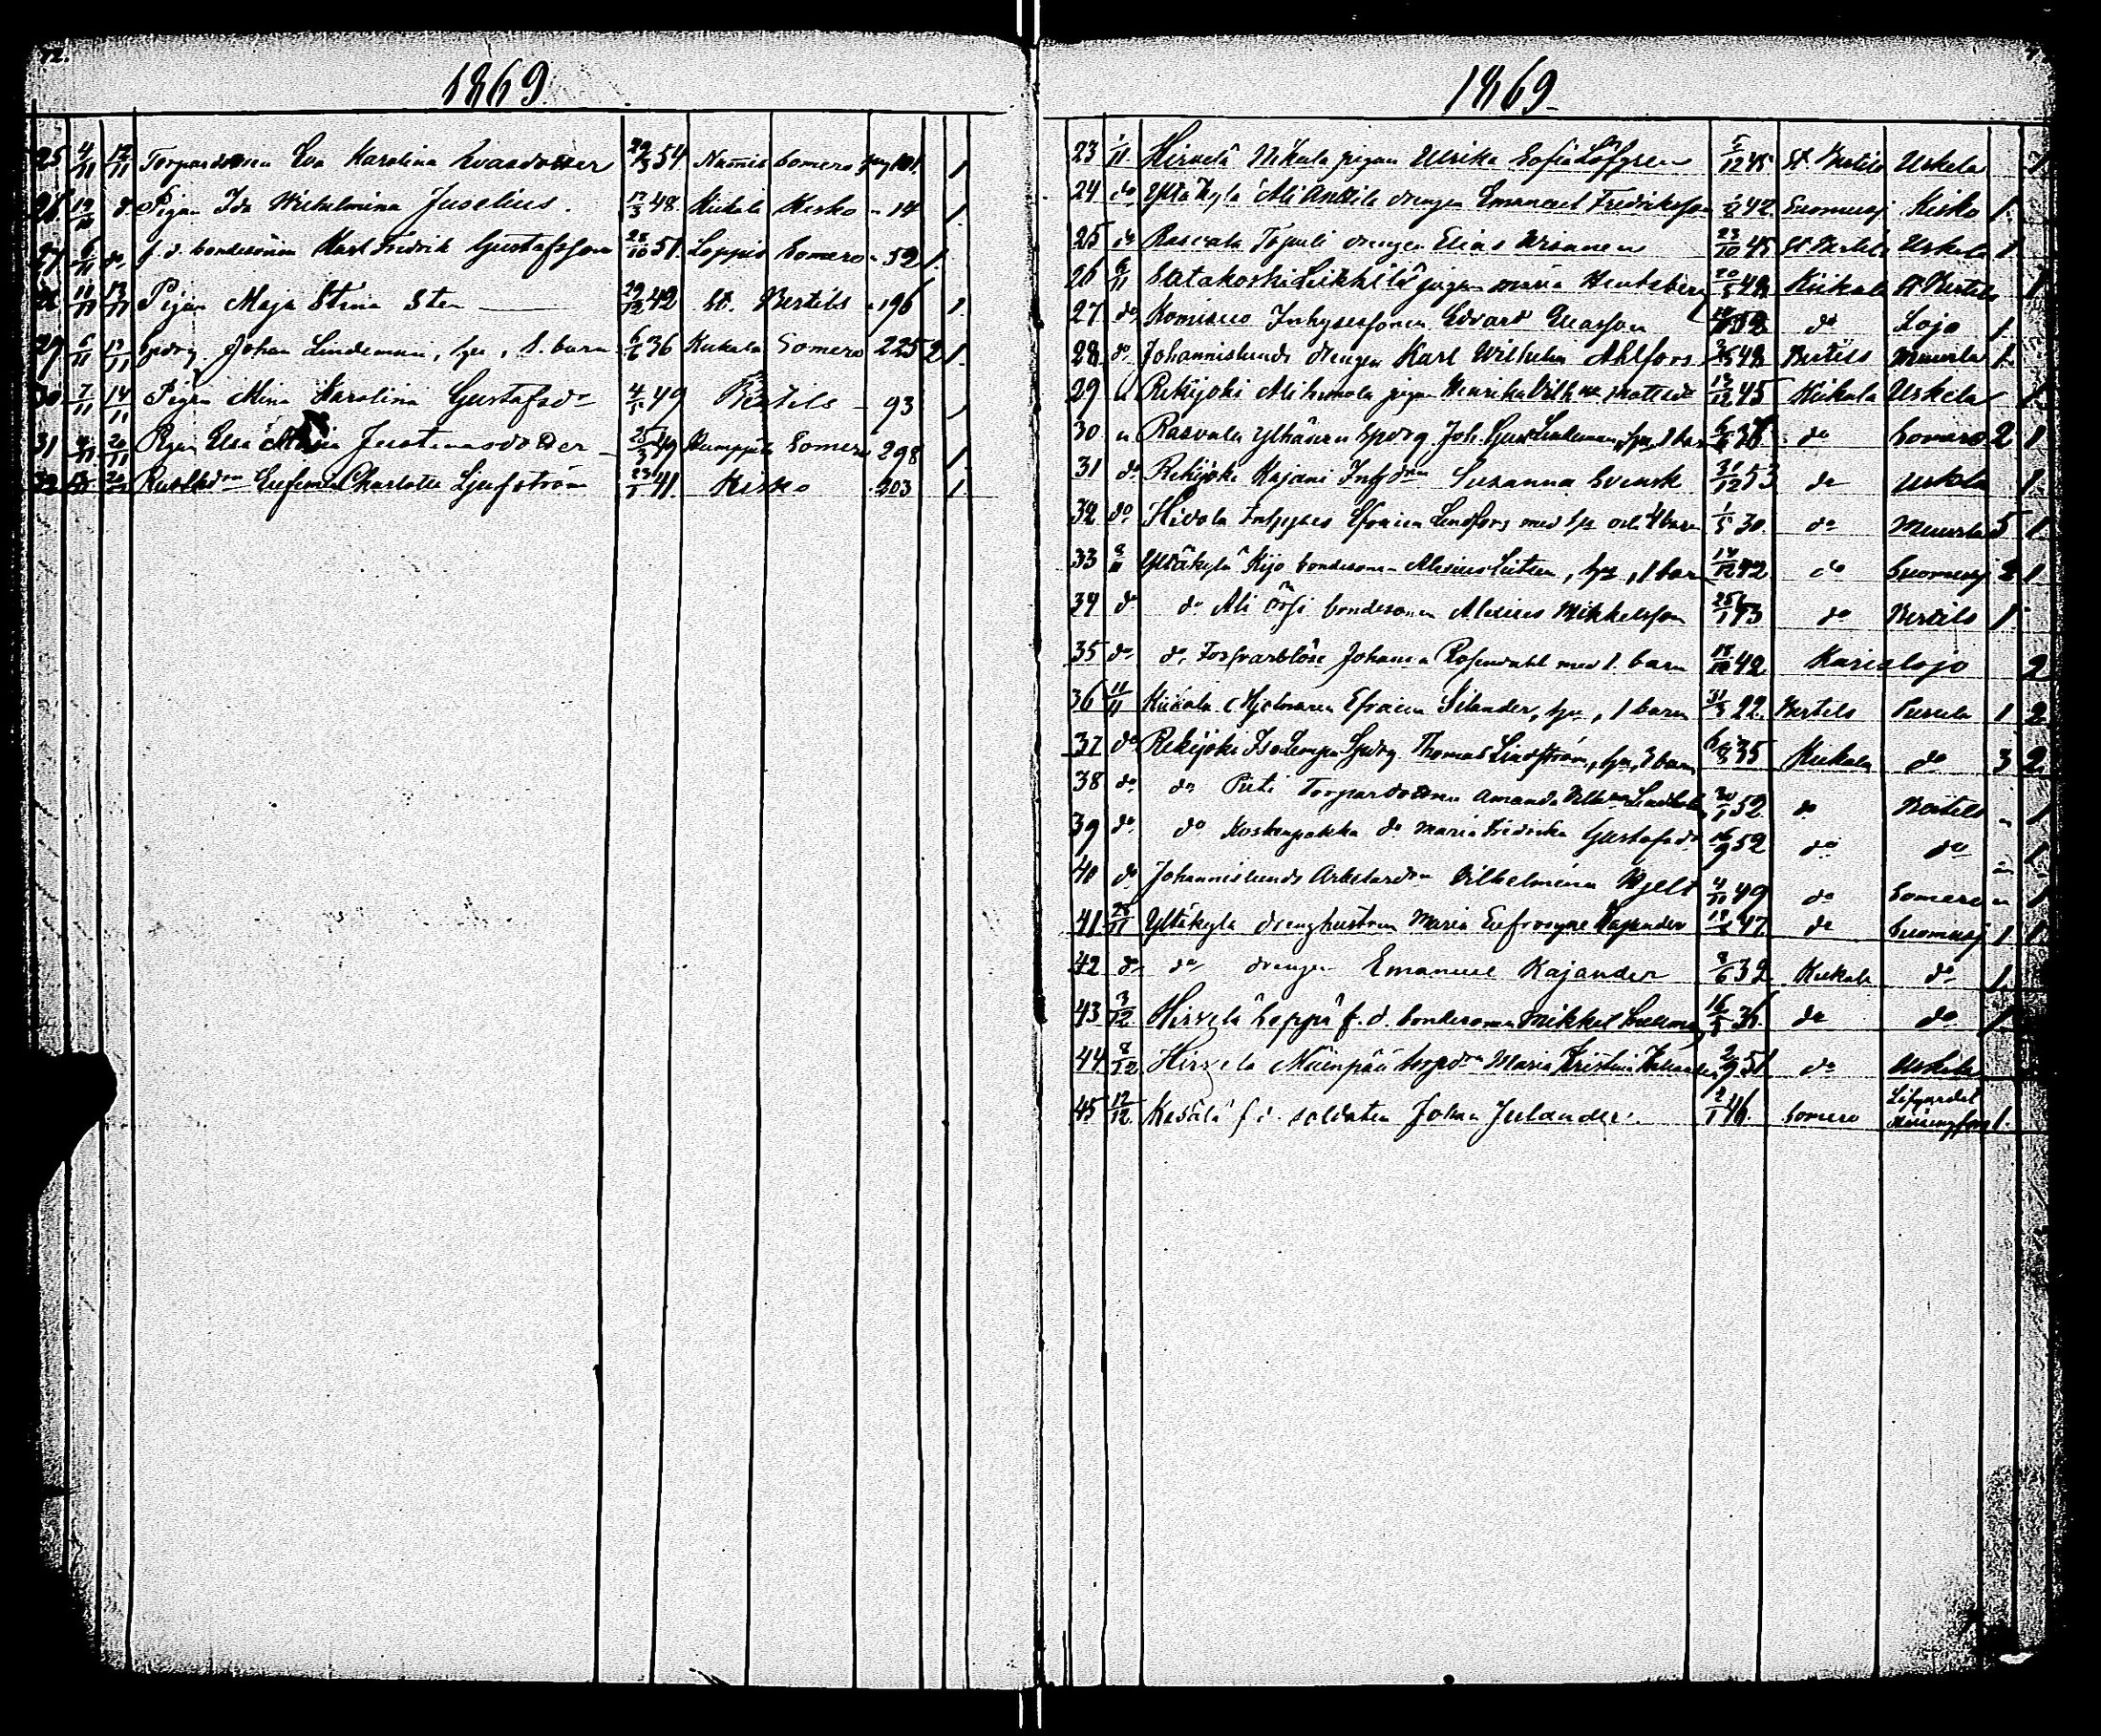 72.
1869.
25 4/11 12/11 Torpardottren Eva Karolina Evasdotter 29/3 54 Nummis Somero pag 101. 1
26 d:o Pigan Ida Wilhelmina Juselius. 17/3 48 Kiikala Kisko " 14 1.
27 6/11 d:o f. d. bondesonen Karl Fredrik Gustafsson 28/10 51. Loppis Somero " 52 1.
28 11/11 13/11 Pigan Maja Stina Sten 29/12 42 St. Bertils " 196 1.
29 6/11 13/11 Spdrg. Johan Lindeman, hu, 1. barn 6/6 36 Kiikala Somero 225 2 1.
30 7/11 14/11 Pigan Mina Karolina Gustafsdr 49 Bertils - 93 1
31 20/11 Pigan Elsa Maria Justinasdotter 25/3 49 Somero 298 1.
32 20/11 Eufemia Charlotta Ljufström 23/1 41. Kisko 203 1.
1869.
23 1/11. Hirvelä Nikula pigan Ulrika Sofia Löfgren 5/12 45 St. Bertils Uskela 1
24 d:o Yltäkylä Ali Anttila drengen Emanuel Fredriksson 42 Suomusj Kisko 1.
25 d:o Rasvala Töpuli drengen Elias 23/10 45 St Bertils Uskela 1.
26 6/11 Satakoski Leikkilä pigan Maria 20/5 48 Kiikala St Bertils 1
27 d:o Komisuo Inhysessonen Edvard Eliasson 52 d:o Lojo 1.
28. d:o Johannislunds drengen Karl Wilhelm Ahlfors 48 Bertils Muurla 1.
29 " Rekijoki Alihemola pigan Henrika Vilh:na Mattsdr 19/12 45 Kiikala Uskela 1.
30 " Rasvala Ylhäinen Spdrg Joh. Gust Lindeman, hu, 1 barn 6/6 36 d:o Somero 2 1.
31 d:o Rekijoki Kajani Inhdrn Susanna Svensk 31/12 53 d:o Uskela 1.
32 d:o Hidola Inhyses Efraim Lindfors med hu och 4 barn 1/5 30. d:o Muurla 5 1.
33 8/11 Yltäkylä Kijo bondesonen Alexius hu, 1 barn 14/12 42 d:o Suomusj 2 1
34 d:o d:o Ali Örsi bondesonen Alexius Mikkelsson 25/1 53 d:o Bertils 1.
35 d:o d:o Försvarslöse Johanna Rosendahl med 1. barn 18/12 42. Karislojo 2
36 11/11 Kiikala Efraim Silander, hu, 1 barn 31/3 22. Bertils Pusula 1 2
37 d:o Rekijoki Isolempa Spdrg Thomas Lindström, hu, 3 barn 35 Kiikala d:o 3 2
38 d:o d:o Piti Torpardottren Amanda Vilh:na Lindholm 30/1 52. d:o Bertils " 1
39 d:o d:o Koskenpakka d:o Maria Fredrika Gustafsdr 16/9 52 d:o d:o " 1
40 d:o Johannislunds Arbetardrn Vilhelmina Hjelt 4/11 49 d:o Somero " 1
41. 25/11 Yltäkylä drenghustrun Maria Eufrosyne Kajander 19/2 47. d:o Suomusj 1 1
42 d:o d:o drengen Emanuel Kajander 8/6 32 Kiikala d:o 1.
43 3/12 Hirvelä Seppä f. d. bondesonen Mikkel 16/5 36. d:o d:o 1.
44 8/12 Hirvelä Mäenpää torpdrn Maria Kristina 2/9 51. d:o Uskela
45 12/12 Kesälä f. d. soldaten Johan Julander. 2/1 46. Somero Lifgardet Helsingfors 1.